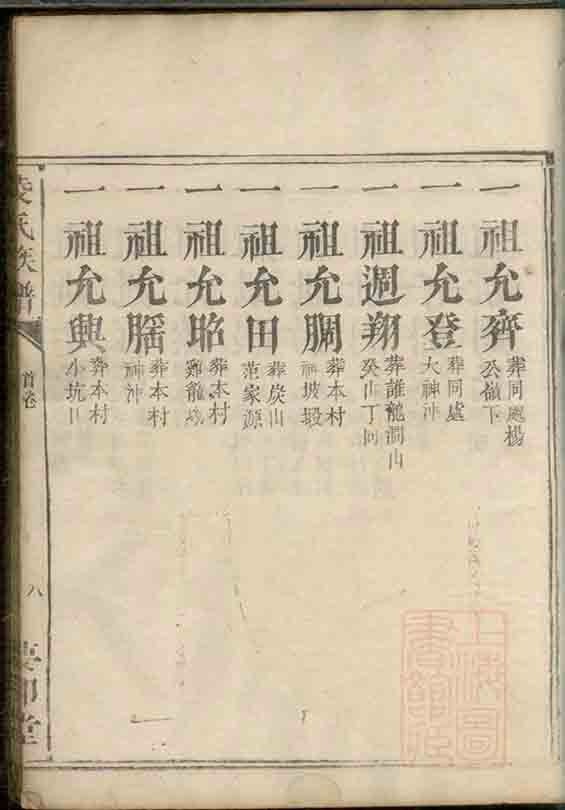 一祖允齊 葬同處楊公嶺下
一祖允登 葬同處大神冲
一祖週翔 葬誰龍澗山癸山丁向
一祖允𦜝 葬本村神坡塅
一祖允田 葬炭山范家源
一祖允昭 葬本村雞籠
一祖允 葬本村神冲
一祖允興 葬本村小坑口
凌氏族譜
首卷
八
堂
上海圖書館藏